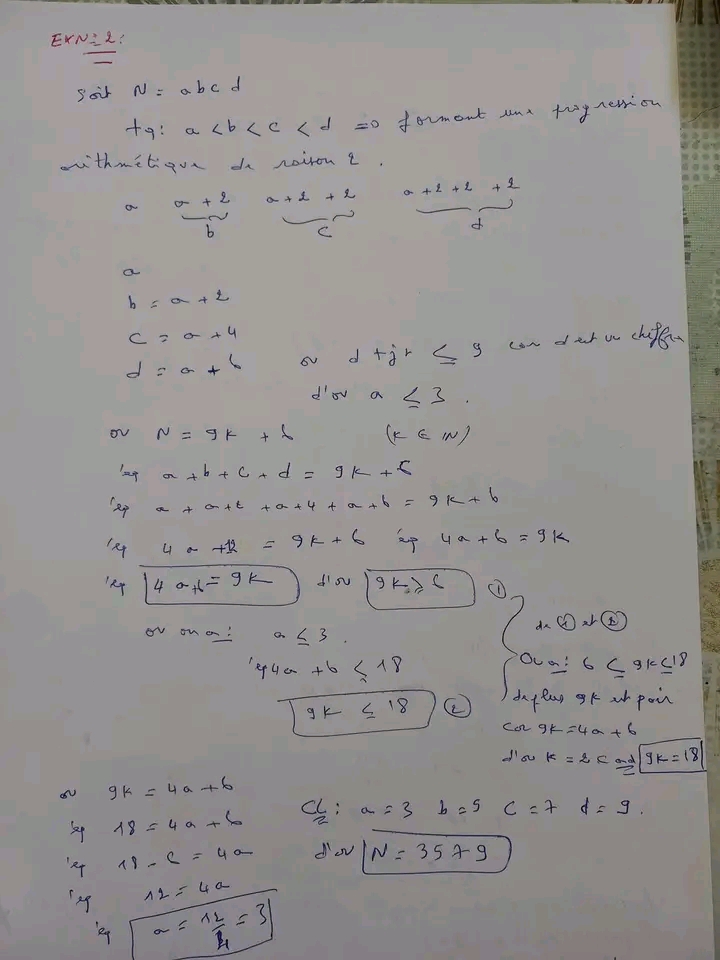 EXN=2:
Soit N = abc d
tq: a < b < c < d => formant une progression
arithmétique de raison 2.
a a + 2 a + 2 + 2 a + 2 + 2 + 2
b c d
a
b = a + 2
c = a + 4
d = a + 6
or d tjr ≤ 9 car d est un chiffre
d'où a ≤ 3.
or N = 9k + 6 (k ∈ IN)
éq a + b + c + d = 9k + 6
éq a + a + 2 + a + 4 + a + 6 = 9k + 6
éq 4a + 12 = 9k + 6 éq 4a + 6 = 9k
éq 4a + 6 = 9k d'où 9k ≥ 6 ①
or on a: a ≤ 3.
éq 4a + 6 ≤ 18
9k ≤ 18 ②
de ① et ②
On a: 6 ≤ 9k ≤ 18
de plus 9k est pair
car 9k = 4a + 6
d'où k = 2 cad 9k = 18
or 9k = 4a + 6
éq 18 = 4a + 6
éq 18 - 6 = 4a
éq 12 = 4a
éq a = 12/4 = 3
CL: a = 3 b = 5 c = 7 d = 9.
d'où N = 3579